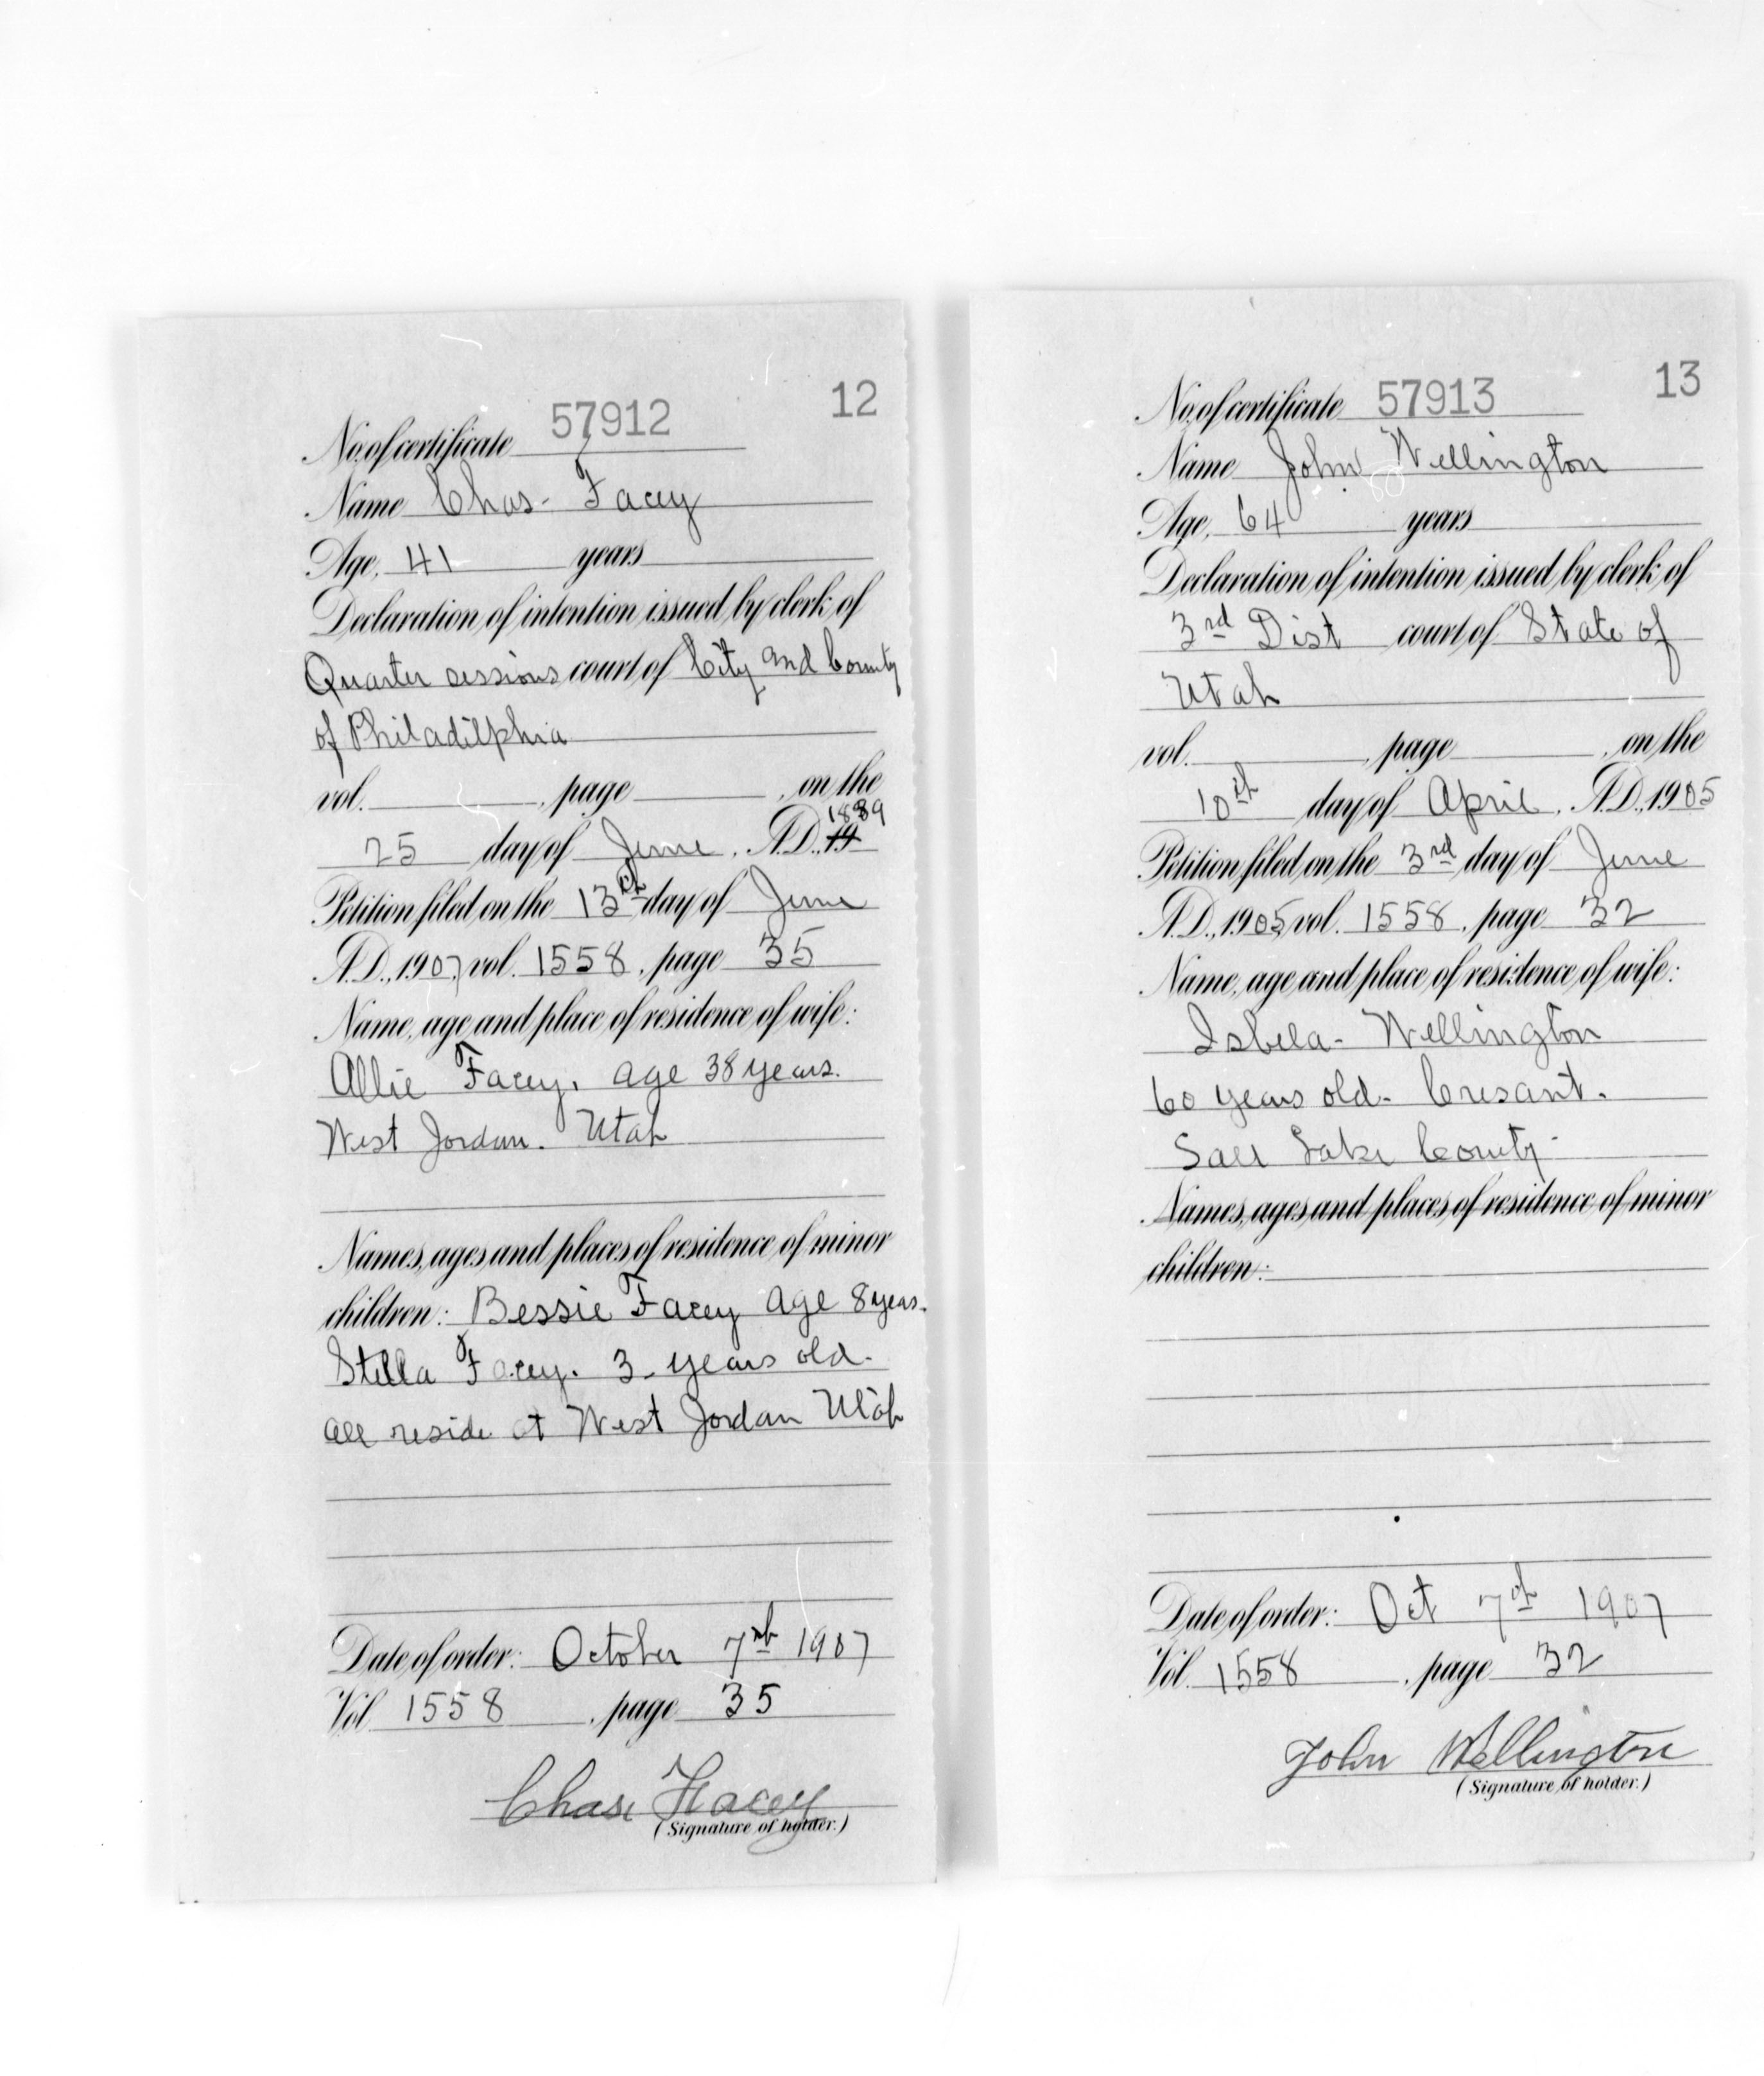 57912 12
No. of certificate
Name Chas. Facey
Age, 41 years
Declaration of intention issued by clerk of
Quarter sessions court of City and County
of Philadilphia
vol. , page , on the
1889
25 day of June, A.D. 19
Petition filed on the 13th day of June
A.D., 1907, vol. 1558, page 35
Name, age and place of residence of wife:
Allie Facey. age 38 years.
West Jordan. Utah
Names, ages and places of residence of minor
children: Bessie Facey age 8 years.
Stella Facey. 3 years old.
all reside at West Jordan Utah
Date of order: October 7th 1907
Vol. 1558, page 35
Chas Facey
(Signature of holder.)
13
No. of certificate 57913
Name John Wellington
Age, 64 years
Declaration of intention issued by clerk of
3rd Dist court of State of
Utah
vol. , page , on the
10th day of April, A.D., 1905
Petition filed on the 3rd day of June
A.D., 1905, vol. 1558, page 32
Name, age and place of residence of wife:
Isbela - Wellington
60 years old - Cresant.
Lake County -
Names, ages and places of residence of minor
children:
Date of order: Oct 7th 1907
Vol. 1558, page 32
John Wellington
(Signature of holder.)